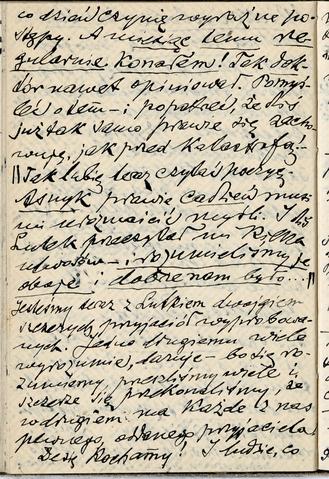 co dzień czynię wyraźne po-
stępy. A miesiąc temu re-
gularnie konałem! Tak dok-
tór nawet opiniował. Pomyś-
leć o tem – i popatrzeć, że dziś
już tak samo prawie się zacho-
wuję, jak przed katastrofą. –
Tak lubię teraz czytać poezję.
Asnyk prawie codzień musi
mi urozmaicić myśli. I dziś
Lutek przeczytał mi kilka
utworów – i rozumieliśmy je
obaj i dobrze nam było...
Jesteśmy teraz z Lutkiem dwojgiem
szczerych przyjaciół wypróbowa-
nych. Jeden drugiemu wiele
wyrozumie, daruje – bo się ro-
zumiemy, przeszliśmy wiele i
szczerze się przekonaliśmy, że
w drugiem ma każde z nas
pewnego, oddanego przyjaciela.
Lecz kochamy! I ludzie, co